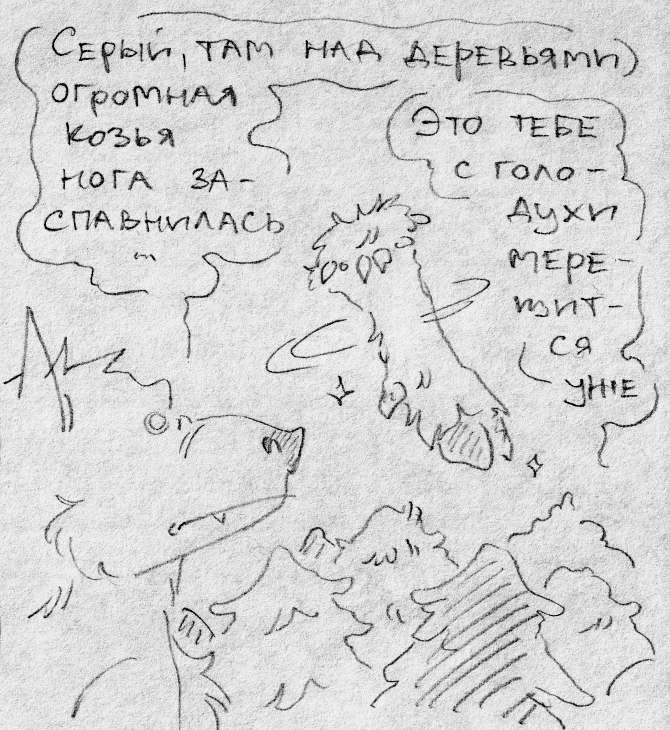 Серый, там над деревьями
огромная
козья
нога за-
спавнилась
...
Это тебе
с голо-
духи
мере-
щит-
ся
уже